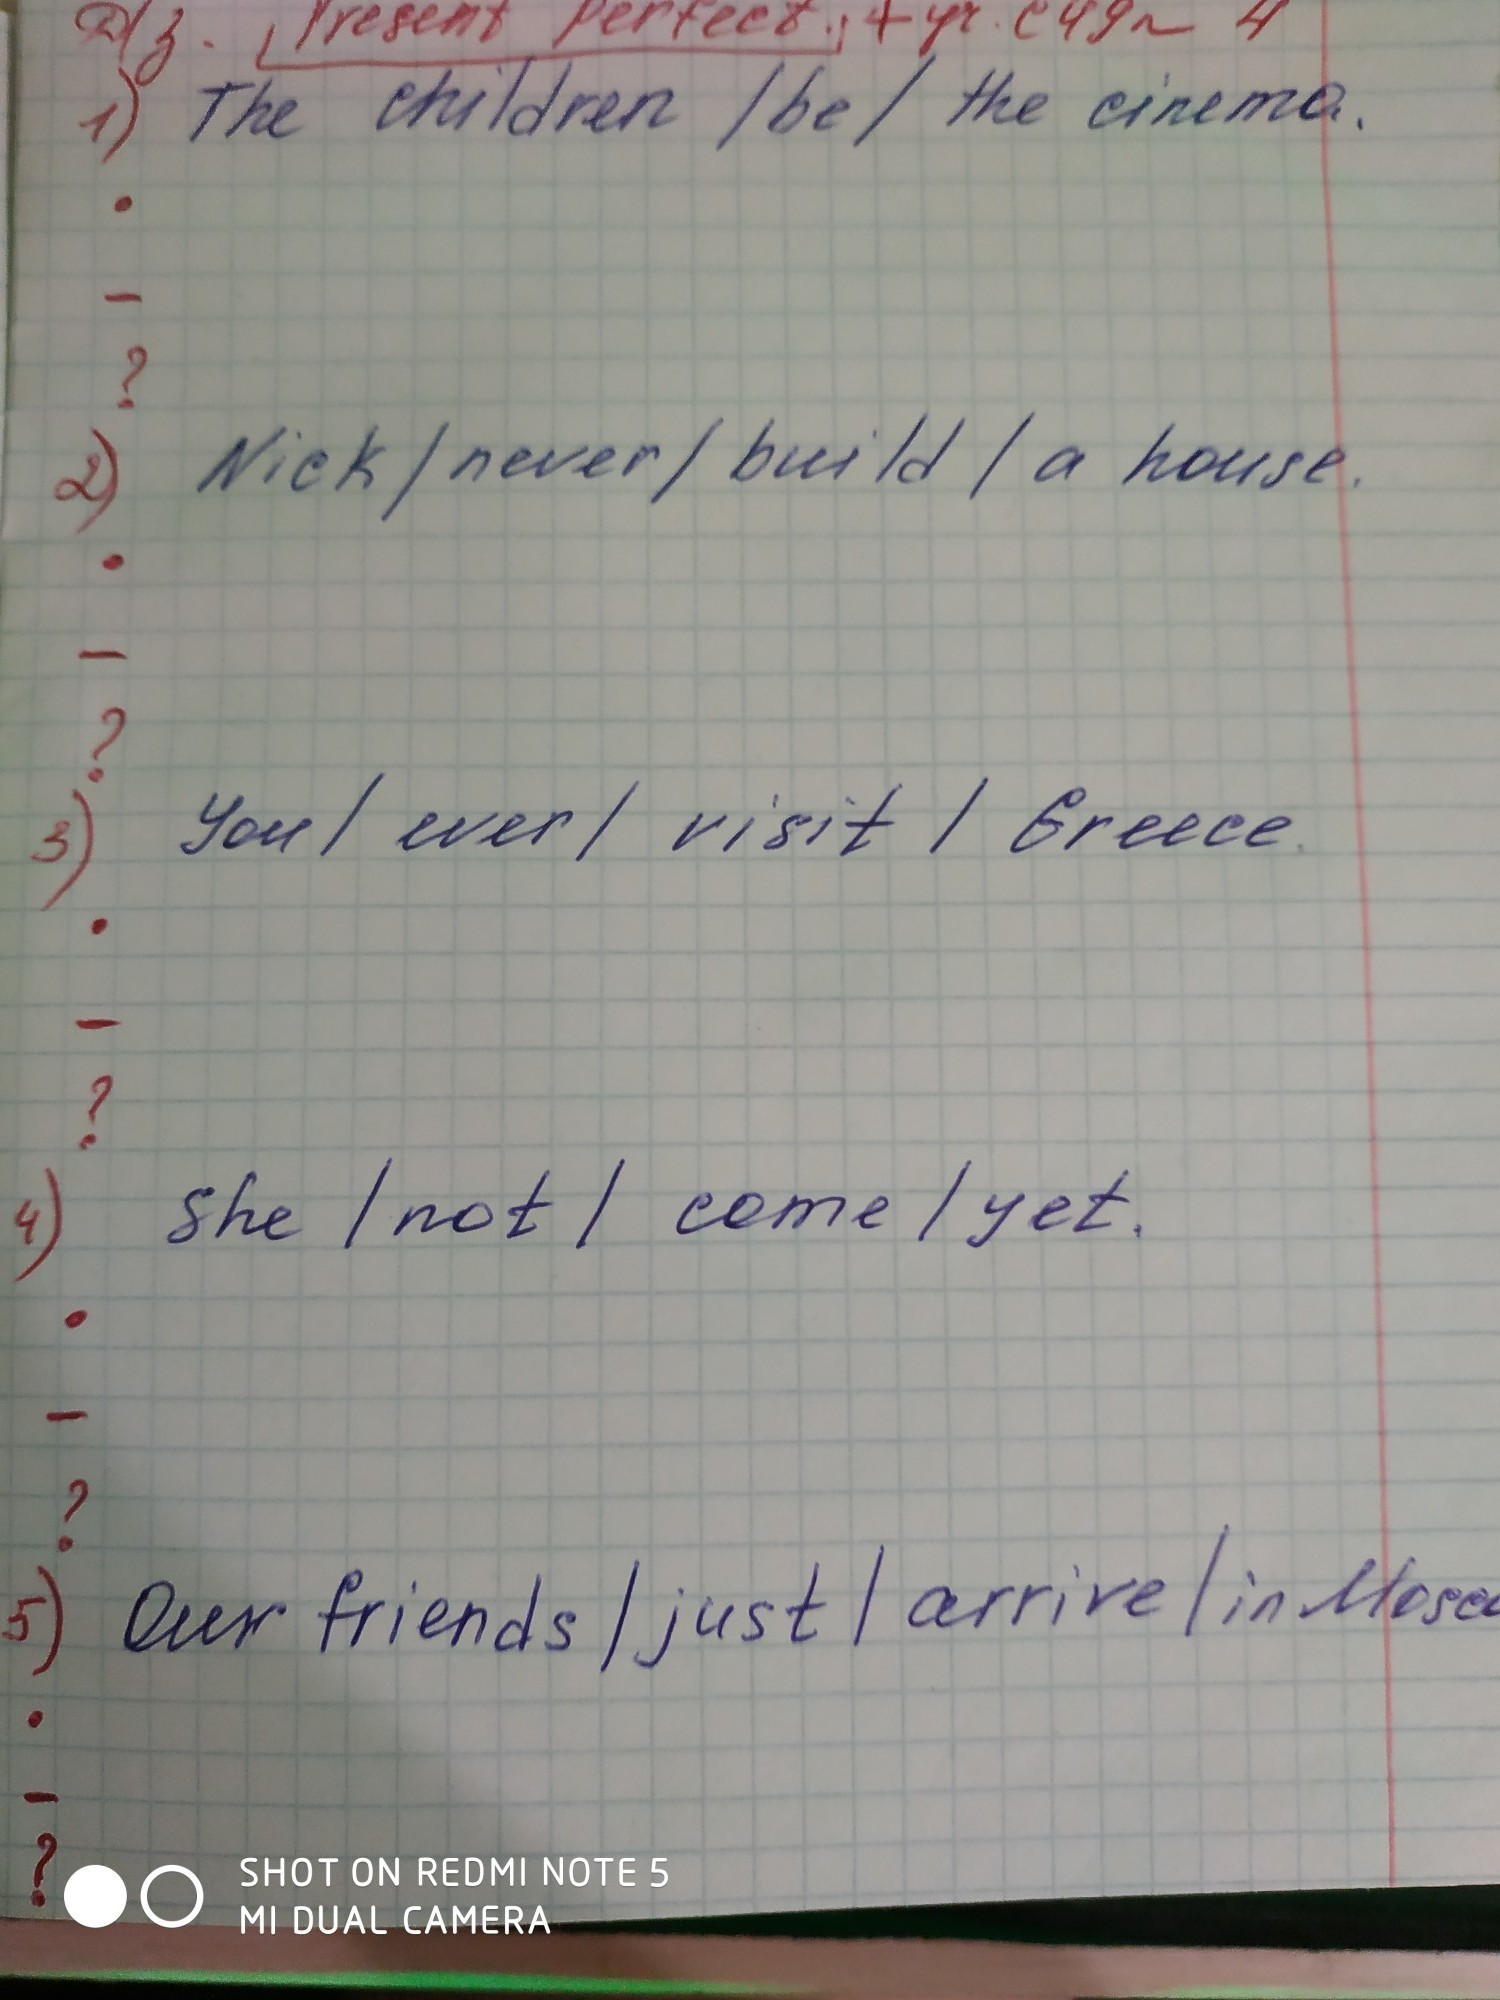 Д/з. Present Perfect. + уг. с 49 ~ 4
1) The children /be/ the cinema.
•
–
?
2) Nick/never/build/a house.
•
–
?
3) You/ever/visit/Greece.
•
–
?
4) She/not/come/yet.
•
–
?
5) Our friends/just/arrive/in
•
–
?
SHOT ON REDMI NOTE 5
MI DUAL CAMERA